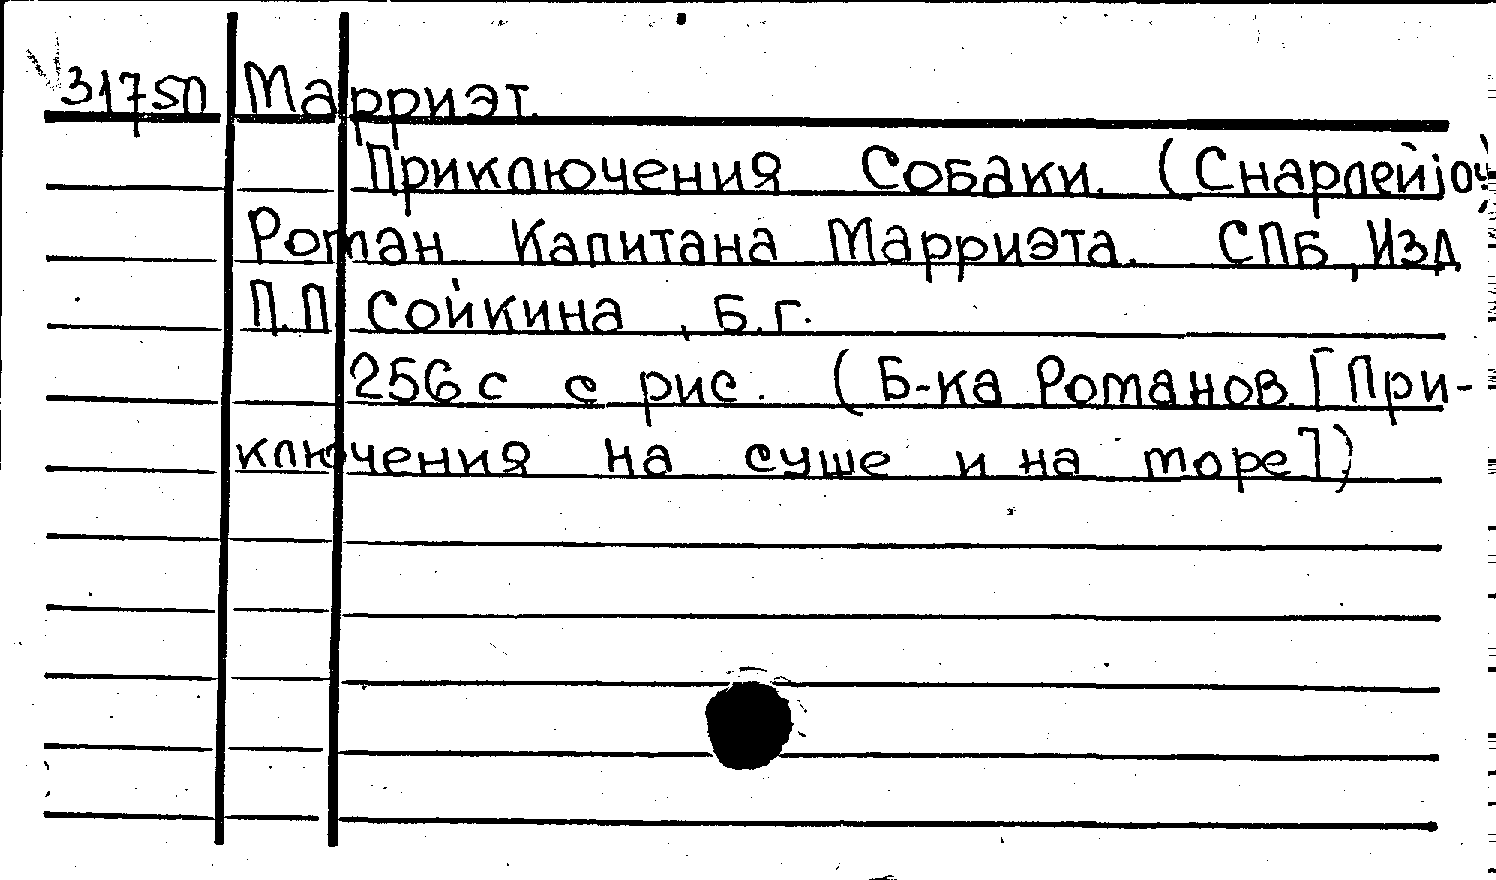 31750 Марриэт.
Приключения Собаки. (Снарлейіоч
Роман Капитана Марриэта. СПБ, Изд
П.П Сойкина, Б.г.
256 с с рис. (Б-ка Романов [При-
ключения на суше и на море])